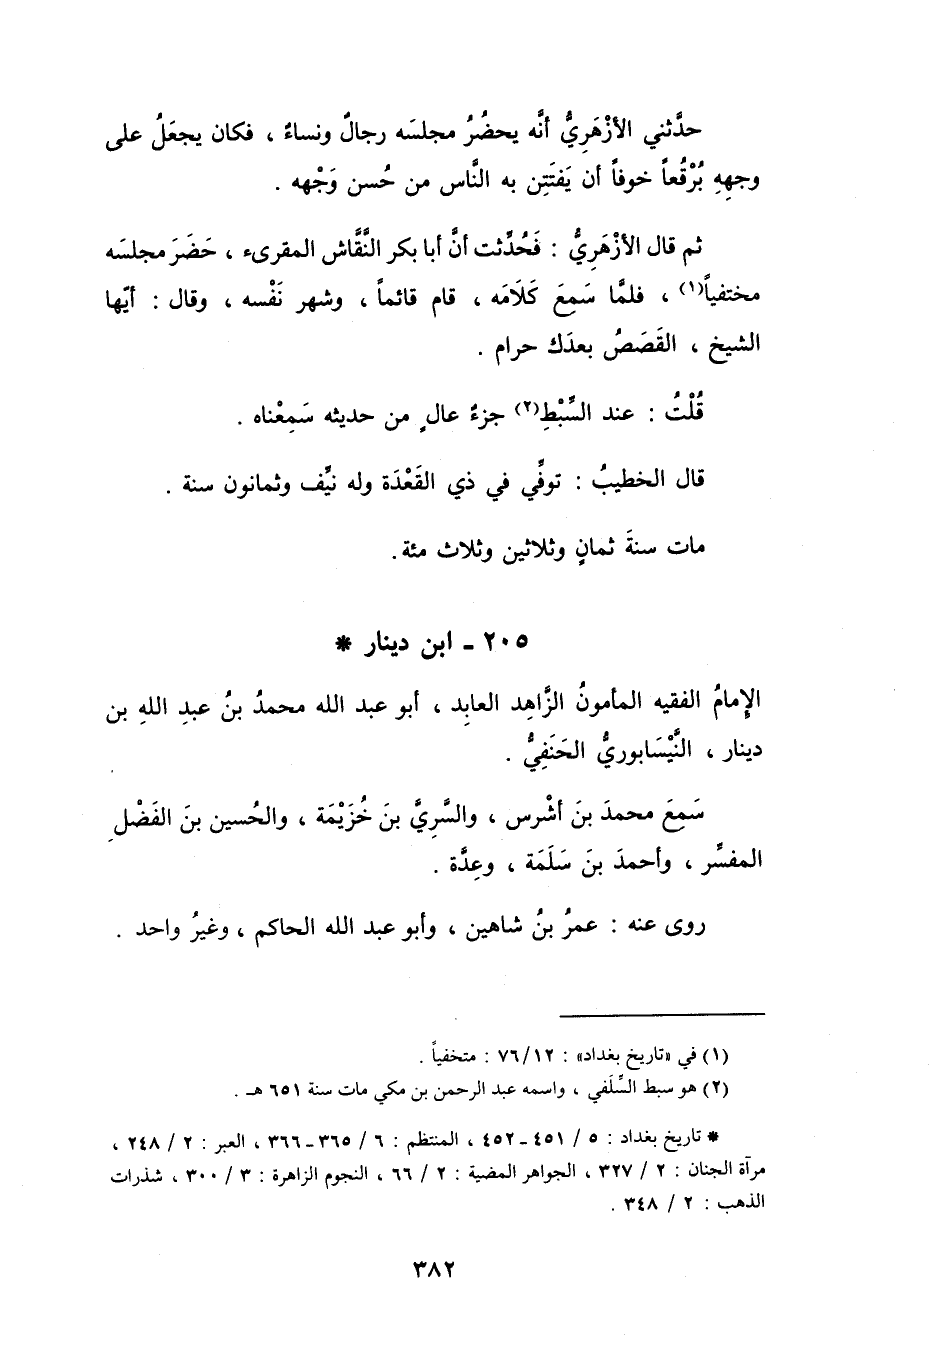 حدَّثني الأزْهَرِيُّ أنَّه يحضُرُ مجلسَه رجالٌ ونساءٌ ، فكان يجعَلُ على
وجهِهِ بُرْقُعاً خوفاً أن يَفتَتِن به النَّاس من حُسن وَجْهه .
ثم قال الأزْهَرِيُّ : فَحُدِّثت أنَّ أبا بكر النَّقَّاش المقرىء ، حَضَرَ مجلسَه
مختفياً(١) ، فلمَّا سَمِعَ كَلَامَه ، قام قائماً ، وشهر نَفْسه ، وقال : أيّها
الشيخ ، القَصَصُ بعدَك حرام .
قُلْتُ : عند السِّبْطِ(٢) جزءٌ عالٍ من حديثه سَمِعْناه .
قال الخطيبُ : توفِّي في ذي القَعْدَة وله نيِّف وثمانون سنة .
مات سنةَ ثمانٍ وثلاثين وثلاث مئة .
٢٠٥ - ابن دينار *
الإِمامُ الفقيه المأمونُ الزَّاهِد العابِد ، أبو عبد الله محمدُ بنُ عبدِ اللهِ بن
دينار ، النَّيْسَابوريُّ الحَنَفِيُّ .
سَمِعَ محمدَ بنَ أشْرس ، والسَّرِيَّ بنَ خُزَيْمَة ، والحُسين بنَ الفَضْلِ
المفسِّر ، وأحمدَ بنَ سَلَمَة ، وعِدَّة .
روى عنه : عمرُ بنُ شاهين ، وأبو عبد الله الحاكم ، وغيرُ واحد .
(١) في «تاريخ بغداد» : ٧٦/١٢ : متخفياً .
(٢) هو سبط السِّلَفي ، واسمه عبد الرحمن بن مكي مات سنة ٦٥١ هـ .
* تاريخ بغداد : ٥ / ٤٥١ - ٤٥٢ ، المنتظم : ٦ / ٣٦٥ - ٣٦٦ ، العبر : ٢ / ٢٤٨ ،
مرآة الجنان : ٢ / ٣٢٧ ، الجواهر المضية : ٢ / ٦٦ ، النجوم الزاهرة : ٣ / ٣٠٠ ، شذرات
الذهب : ٢ / ٣٤٨ .
٣٨٢